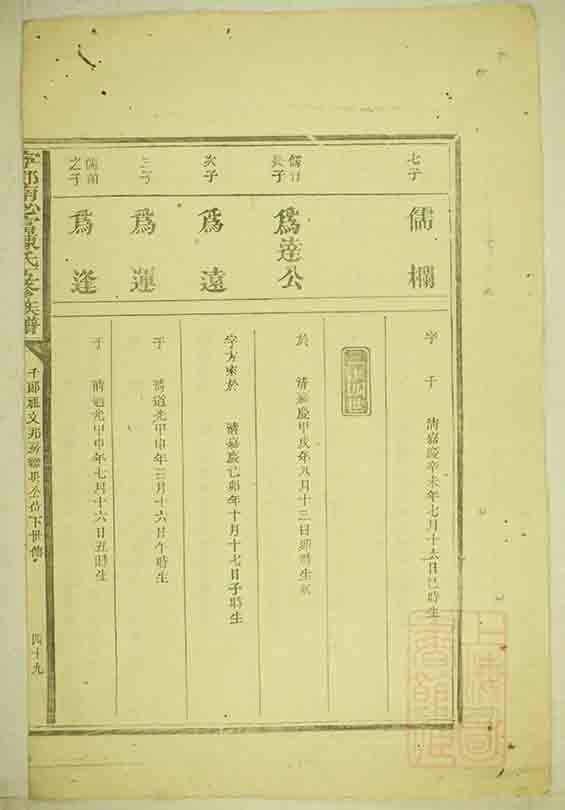 七子
儒欄
字 于 清嘉慶辛未年七月十六日巳時生
長子
為達公
於 清嘉慶甲戌年八月十三日卯時生
次子
為遠
字方來於 清嘉慶己卯年十月十七日子時生
三子
為運
于 清道光甲申年三月十六日午時生
之子
為逢
于 清道光甲申年七月十六日丑時生
氏 修族譜
公位下世傳
四十九
上海圖